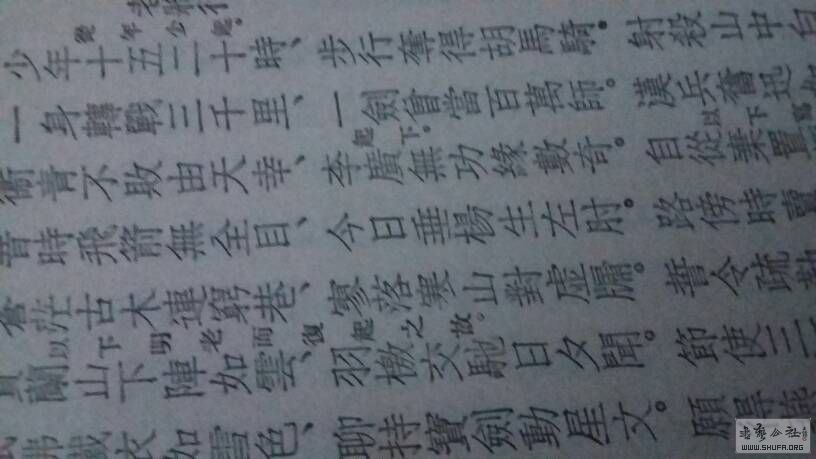 老將行
少年十五二十時、步行奪得胡馬騎。射殺山中白
一身轉戰三千里、一劍曾當百萬師。漢兵奮迅如
起下。
以下
衛青不敗由天幸、李廣無功緣數奇。自從棄置
昔時飛箭無全目、今日垂楊生左肘。路傍時賣
蒼茫古木連窮巷、寥落寒山對虛牖。誓令疏勒
以下明老而復起之故。
蘭山下陣如雲、羽檄交馳日夕聞。節使三
拂鐵衣如雪色、聊持寶劍動星文。願
WWW.SHUFA.ORG